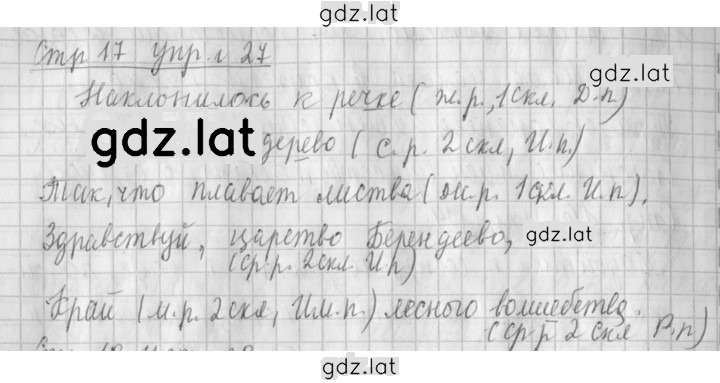 gdz.lat
Стр 17 упр. 27
gdz.lat
Наклонилось к речке (ж.р., 1 скл, Д.п)
gdz.lat дерево (с.р. 2 скл, И.п.)
Так, что плавает листва (ж.р. 1 скл. И.п),
Здравствуй, царство Берендеево, gdz.lat
(ср.р. 2 скл. И.п)
Край (м.р. 2 скл, Им.п.) лесного волшебства.
(ср р 2 скл Р.п)
gdz.lat